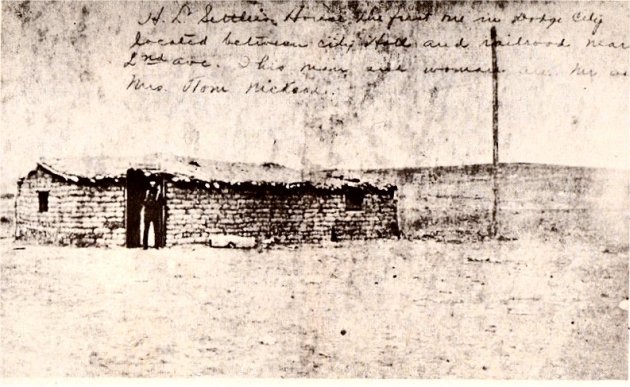 H. L. Settlers House the first one in Dodge City
located between city Hall and railroad near
2nd ave. This man and woman are Mr a
Mrs. Tom